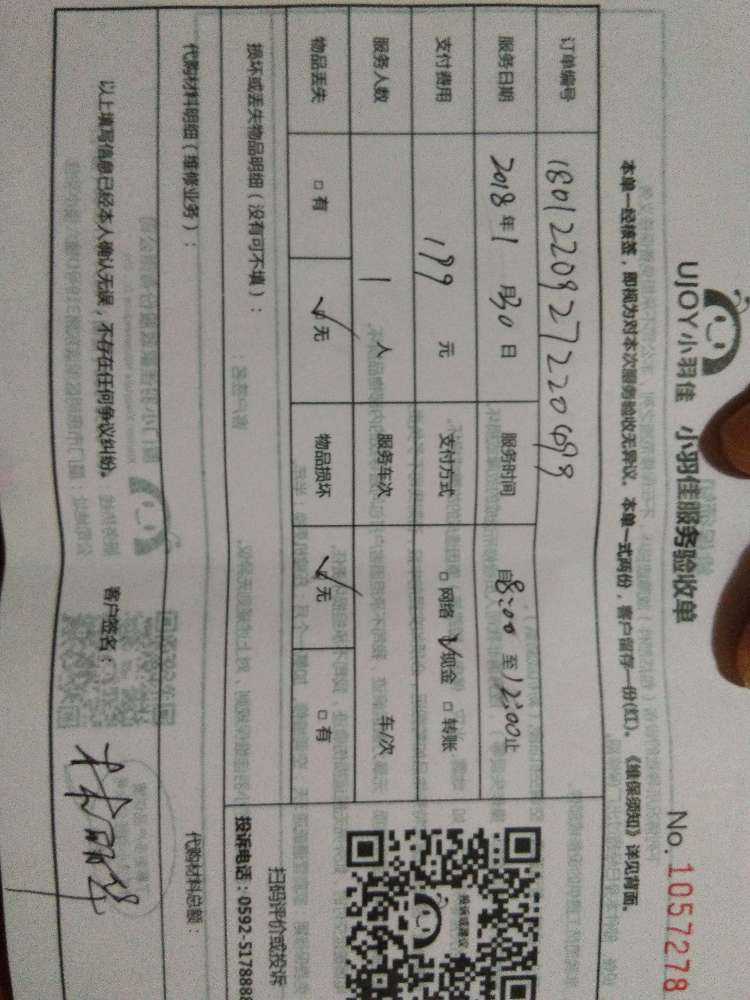 UJOY小羽佳 小羽佳服务验收单
No. 1057278
本单一经核签，即视为对本次服务验收无异议。本单一式两份，客户留存一份(红)。《维保须知》详见背面。
订单编号
服务日期 2018年1月30日 服务时间 自8:00至12:00止
支付费用 199元 支付方式 □网络 √现金 □转账
服务人数 1人 服务车次 车/次
物品丢失 □有 √无 物品损坏 √无 □有
损坏或丢失物品明细（没有可不填）：
代购材料明细（维修业务）： 代购材料总额：
以上填写信息已经本人确认无误，不存在任何争议纠纷。 客户签名：
投诉或建议
扫码评价或投诉
投诉电话：0592-5178888